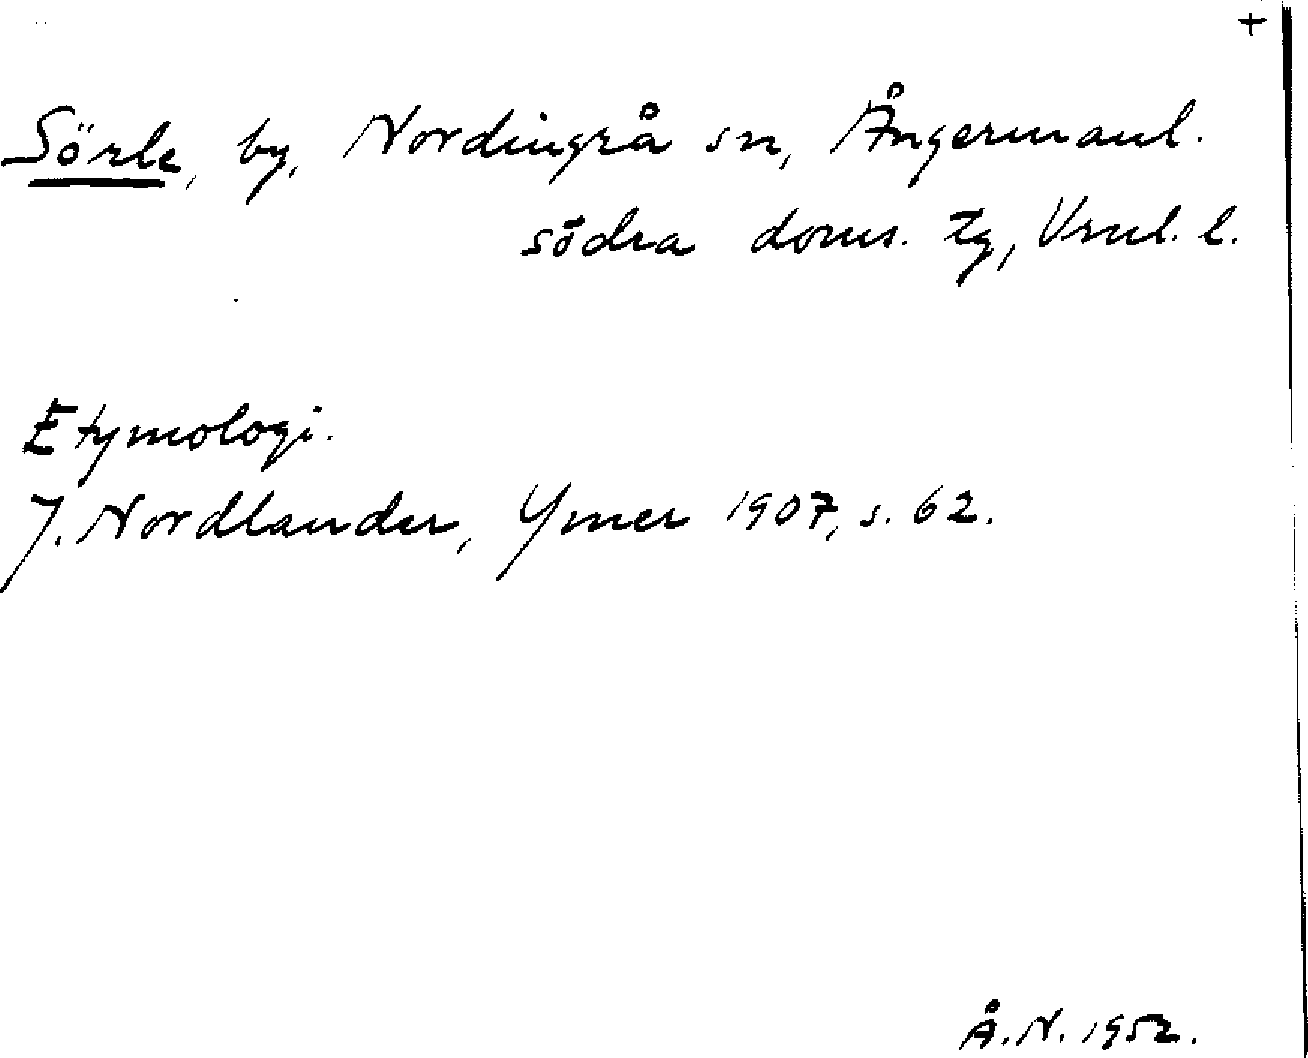 +
Sörle, by, Nordingrå sn, Ångermanl.
södra doms. tg, Vrnl. l.
Etymologi.
J. Nordlander, Ymer 1907, s. 62.
Å.N. 1952.